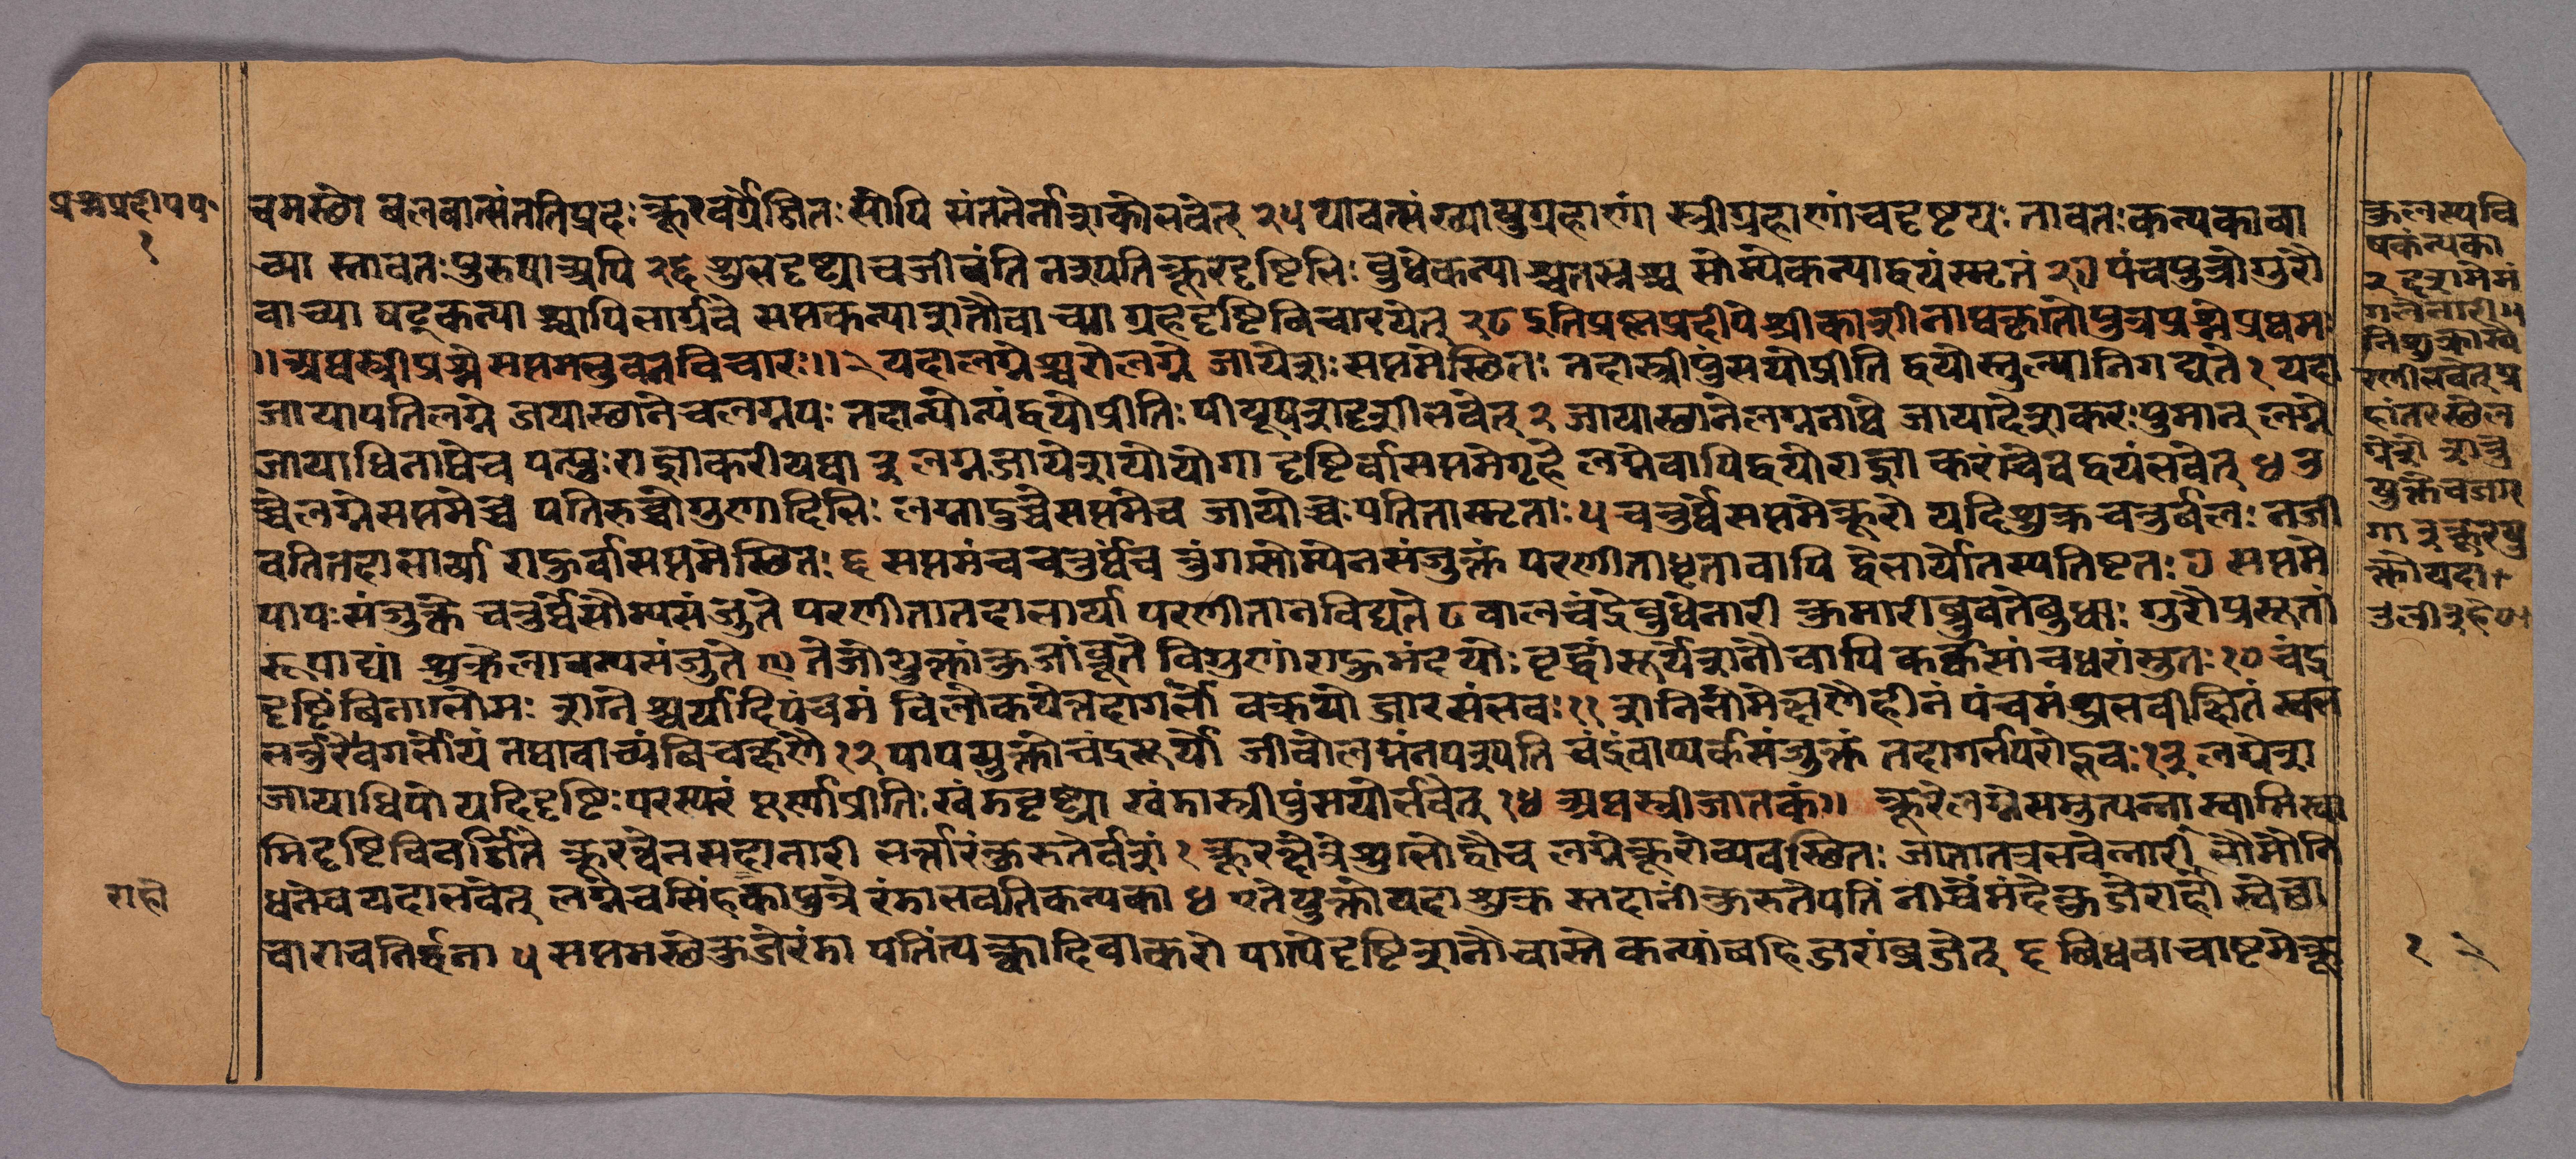 प्रश्नप्रदीपप॰
१
चमस्थो बलवान्संततिप्रदः क्रूरवर्गैर्जितः सोपि संततेर्नाशको भवेत् २५ यावत्संख्या पुग्रहाणां स्त्रीग्रहाणां च दृष्टयः तावतः कन्यका वा
च्या स्तावतः पुरुषा अपि २६ शुभदृष्ट्या च जीवंति नश्यति क्रूरदृष्टिभिः बुधे कन्या श्चतस्रश्च सौम्ये कन्याद्वयं स्मृतं २७ पंचपुत्रो गुरौ
वाच्या षट्कन्या श्चापि भार्गवे सप्तकन्या शनौ वाच्या ग्रहदृष्टि विचारयेत् २८ इति प्रश्नप्रदीपे श्रीकाशीनाथकृतो पुत्रप्रश्ने प्रथमः
॥ अथ स्त्रीप्रश्ने सप्तमभुवनविचारः ॥ २ यदा लग्नेश्वरो लग्ने जायेशः सप्तमे स्थितः तदा स्त्रीपुंसयो प्रीति द्वयोस्तुल्या निगद्यते १ यदा
जायापति लग्ने जयास्थाने च लग्नपः तदान्योन्यं द्वयो प्रीतिः पीयूषशदृशी भवेत् २ जायास्थाने लग्ननाथे जायादेशकरः पुमान् लग्ने
जायाधिनाथे च पत्युः राज्ञाकरी यथा ३ लग्नजायेशयो योगा दृष्टिर्वा सप्तमे गृहे लग्ने वापि द्वयो राज्ञा करां चैव द्वयं भवेत् ४ उ
च्चे लग्ने सप्तमे च्चे पतिरुच्चो गुणादिभिः लग्नादुच्चे सप्तमे च जायोच्चः पतिता स्मृताः ५ चतुर्थे सप्तमे क्रूरो यदि शुक्र चतुर्थलः न जी
वति तदा भार्या राहुर्वा सप्तमे स्थितः ६ सप्तमं च चतुर्थं च तुंगसौम्येन संजुक्तं परणीता धृता वापि द्वै भार्या तस्य तिष्टतः ७ सप्तमे
पापः संजुक्ते चतुर्थे सौम्यसंजुते परणीता तदा भार्या परणीता न विद्यते ८ बालचंद्रे बुधे नारी कुमारी ब्रुवते बुधाः गुरौ प्रसूतां
रूपाढ्यां शुक्रे लावन्यसंजुते ९ तेजोयुक्तां कुजां ब्रूते विगुणां राहुमंदयोः वृद्धां सूर्य शनौ वापि कर्कसां च धरां सुतः १० चंद्र
दृष्टिं विना भौमः शनि श्चर्यादि पंचमं विलोकयेत्तदा गर्भो वक्रयो जारसंभवः ११ शनि भौमेक्षणै हीनं पंचमं शुभवीक्षितं स्वभ
र्भर्तुरेव गर्भोयं तथा वाच्यं विचक्षणै १२ पापयुक्तौ चंद्रसूर्यो जीवो लग्नं न पश्यति चंद्रं वाप्यर्कसंजुक्तं तदा गर्भ परोद्भवः १३ लग्नेश
जायाधिपो यदि दृष्टिः परस्परं पूर्णा प्रीतिः खंडदृष्ट्या खंडा स्त्रीपुंसयोर्भवेत् १४ अथ स्त्रीजातकं ॥ क्रूरे लग्ने समुत्पन्ना स्वामिस्वा
मिदृष्टिविवर्जिते क्रूरत्वेन सदा नारी भर्त्तारं कुरुते वशं १ क्रूरक्षेत्रे शुभो द्वौ च लग्ने क्रूरो व्यवस्थितः जाता तत्र भवेन्नारी सौमोनि
धनेव यदा भवेत् लग्ने च सिंहकापुत्रे रंडा भवति कन्यका ४ एते युक्तो यदा शुक्र स्तदानीं कुरुते पतिं नीचं मंदे कुजे राहौ स्वेच्छा
चारा च निर्द्धना ५ सप्तमस्थे कुजे रंडा पतिं त्यक्त्वा दिवाकरो पाप्ये दृष्टि शनौ चास्ते कन्यां बहि जरां व्रजेत् ६ विधवा चाष्टमे क्रू
राहो
कुलस्य वि
षकंन्यका
२ द्वशमे मं
गले नारी ॥
नि शुक्रास्ये
रणी भवेत् प्र
हांतरस्थे ल
ग्ने
युक्ते व जार
गा ३ क्रूरयु
क्तो यदा
१ २